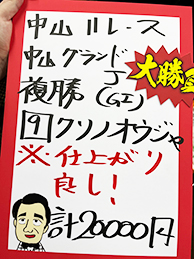 中山11レース
中山グランドJ
複勝(GI)
9クリノオウジャ
※仕上がり
良し!
計20000円
大勝